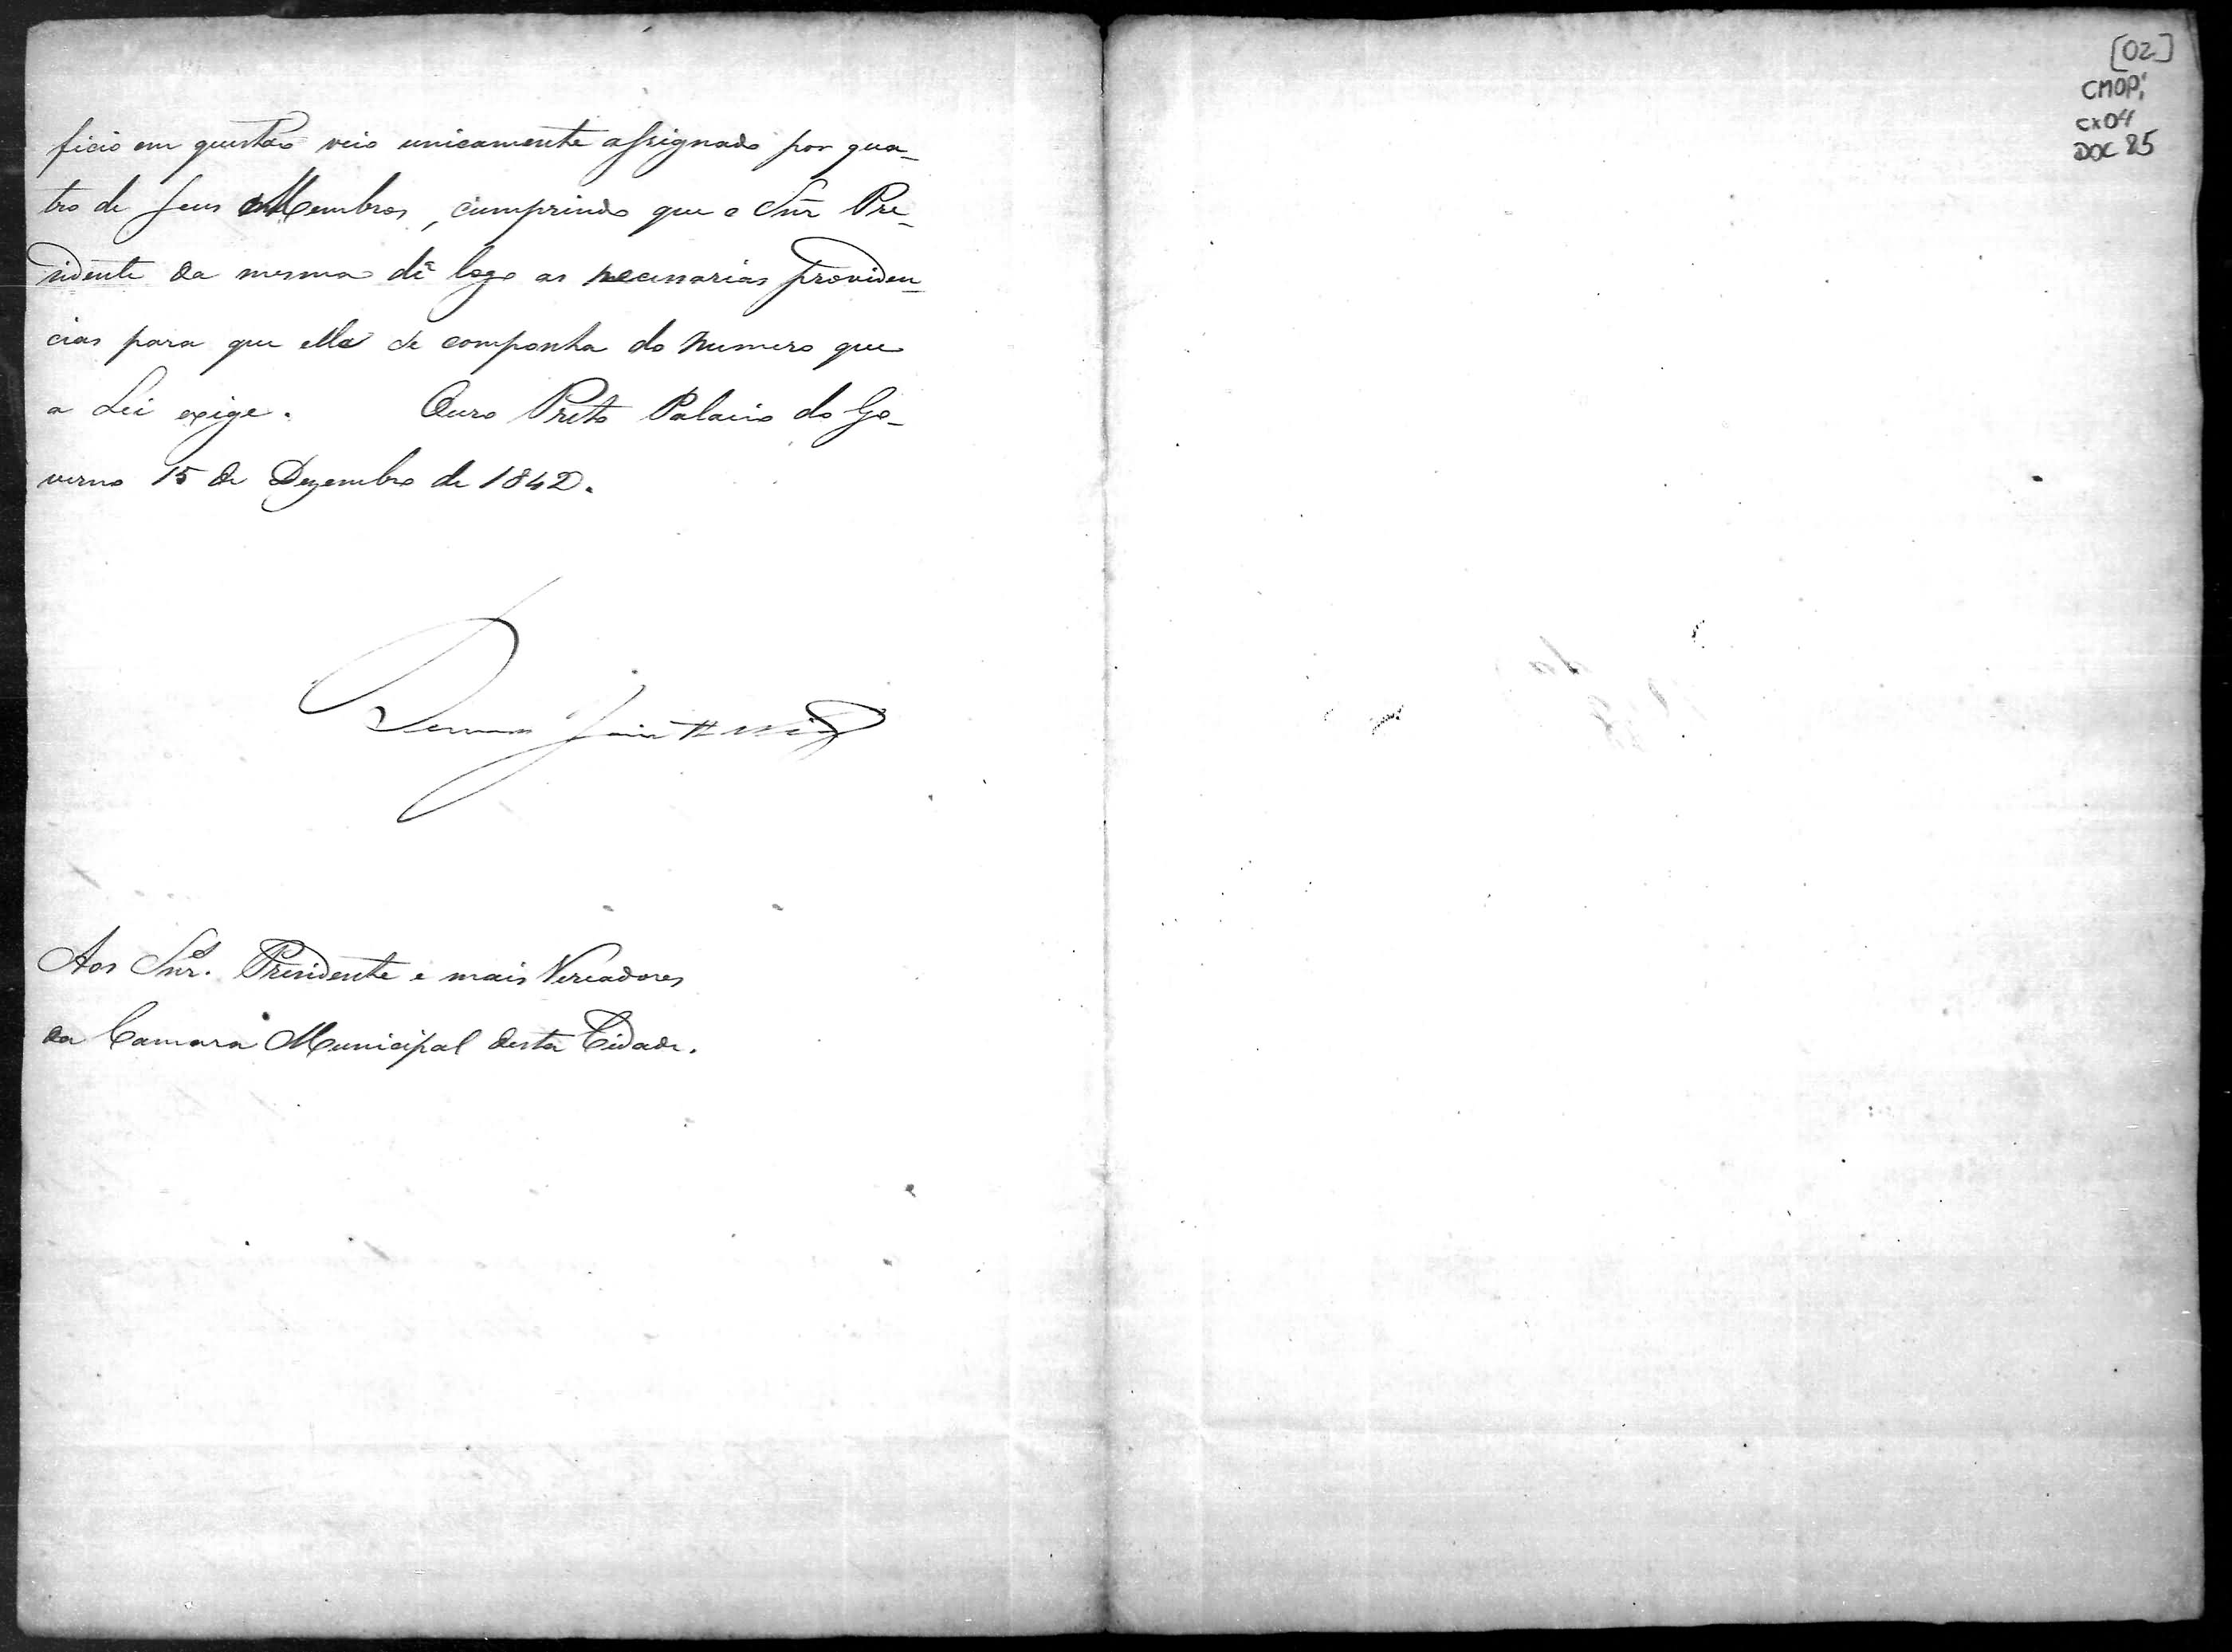 ficio em questão veio unicamente assignado por qua-
tro de seus Membros, cumprindo que o Snr Pre-
sidente da mesma dê logo as necessarias providen-
cias para que ella se componha do numero que
a Lei exige. Ouro Preto Palacio do Go-
verno 15 de Dezembro de 1842.
Aos Snr.es Presidente e mais Vereadores
da Camara Municipal desta Cidade.
[02]
CMOP:
CX04
DOC 85